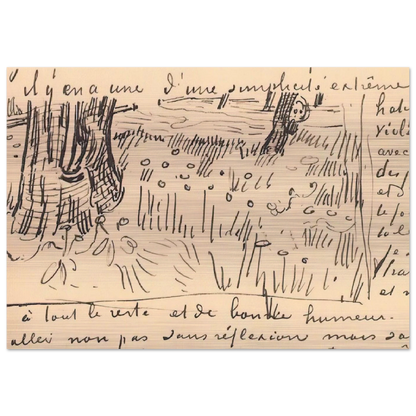 il y en a une d'une simplicité extrême
avec
et
à tout le reste et de bonne humeur.
aller non pas sans réflexion mais sa